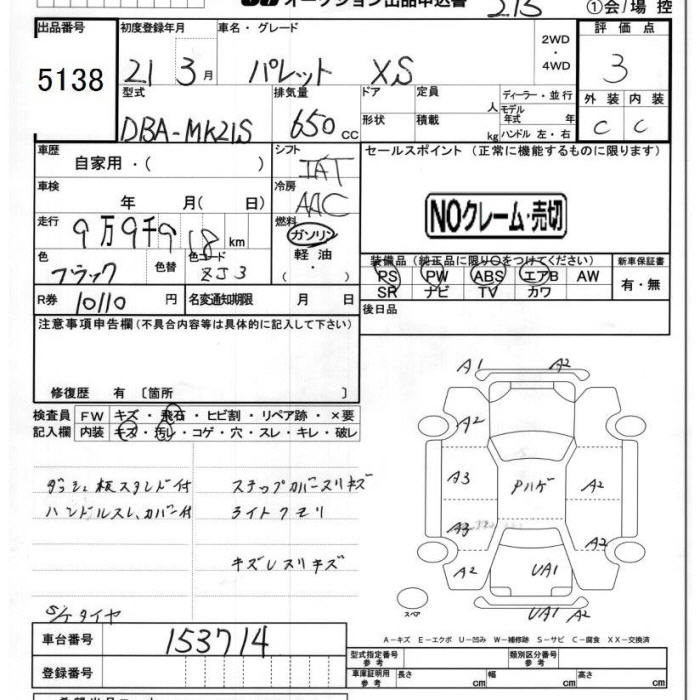 オークション出品申込書
215
①会場控
出品番号
5138
初度登録年月
21 3月
車名・グレード
パレット XS
2WD
・
4WD
評価点
3
型式
DBA-MK21S
排気量
650 cc
ドア
形状
定員
人
積載
kg
ディーラー・並行
モデル
年式 年
ハンドル 左・右
外装 内装
C C
車歴
自家用・( )
シフト
IAT
セールスポイント (正常に機能するものに限ります)
車検
年 月( 日)
冷房
AAC
NOクレーム・売切
走行
9万9千9 18 km
燃料
ガソリン
軽油
・
( )
色
ブラック
色替
色コード
ZJ3
装備品(純正品に限り○をつけてください)
PS PW ABS エアB AW
SR ナビ TV カワ
新車保証書
有・無
R券
10110 円
名変通知期限 月 日
後日品
注意事項申告欄(不具合内容等は具体的に記入して下さい)
修復歴 有 〔箇所 〕
検査員
記入欄
FW キズ・飛石・ヒビ割・リペア跡・×要
内装 キズ・汚レ・コゲ・穴・スレ・キレ・破レ
ダッシュ板スタンド付
ハンドルスレ、カバー付
ステップカバースリキズ
ライトクモリ
キズレスリキズ
S/Tタイヤ
A1 A2
A2
A3 Pハゲ A2
A3 A2
A2 UA1
UA1 A2
スペア
A-キズ E-エクボ U-凹み W-補修跡 S-サビ C-腐食 XX-交換済
車台番号
153714
登録番号
型式指定番号
参考
類別区分番号
参考
車庫証明用
参考
長さ cm 幅 cm 高さ cm